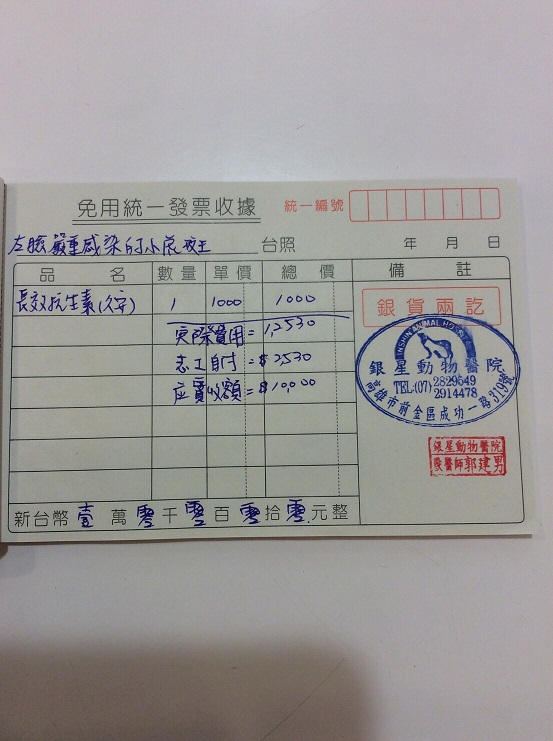 免用統一發票收據
統一編號
左臉嚴重感染的小灰斑
台照
年 月 日
品 名 數量 單價 總價 備註
長效抗生素(久安) 1 1000 1000
銀貨兩訖
實際費用=12530
志工自付=$2530
应實收額=$10000
INSHIN ANIMAL HOSPITAL
銀星動物醫院
TEL:(07)2829549
2914478
高雄市前金區成功一路319號
銀星動物醫院
獸醫師郭建男
新台幣壹萬零千零百零拾零元整